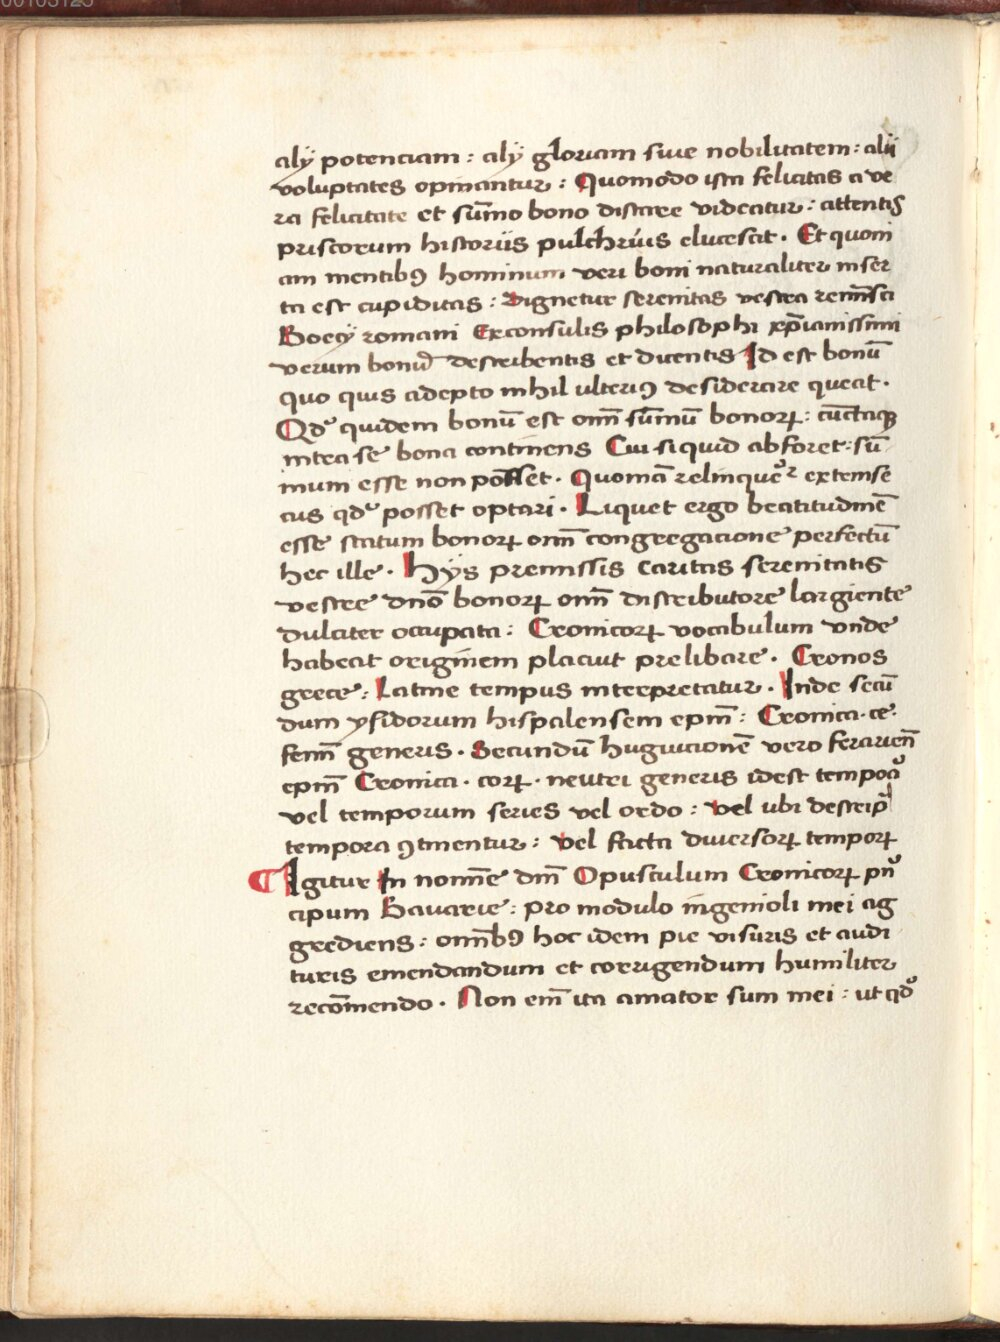 00103123
alÿ potenciam : alÿ gloriam siue nobilitatem : alii
voluptates opinantur : Quomodo ista felicitas a ve
ra felicitate et sūmo bono distare videatur : attentis
priscorum historiis pulchrius elucescit . Et quoni
am mentibꝯ hominum veri boni naturaliter inser
ta est cupiditas : Dignetur serenitas vestra reminsci
Boecÿ romani Exconsulis philosophi xp̄ianissimi
verum bonū describentis et dicentis Id est bonū
quo quis adepto nihil ulteriꝯ desiderare queat .
Qdͦ quidem bonū est om̄ sūmū bonorꝝ : cunctaqꝫ
intra se bona continens Cui si quid abforet : sū
mum esse non posset . Quoniā relinqueͬ extrinse
cus qdͦ posset optari . Liquet ergo beatitudinē
esse statum bonorꝝ om̄ congregacione perfectū
hec ille . Hÿs premissis caritas serenitatis
vestre dn̄o bonorꝝ om̄ distributore largiente
dulciter occupata : Cronicorꝝ vocabulum vnde
habeat originem placuit prelibare . Cronos
grece : Latine tempus interpretatur . Inde secū
dum ysidorum hispalensem epm̄ : Cronica . ce .
femī generis . Secundū huguicionē vero ferarien̄
epm̄ Cronica . corꝝ . neutri generis idest tempoꝝ
vel temporum series vel ordo : vel ubi descripͣ
tempora ꝯtinentur : vel facta diuersorꝝ temporꝝ
Igitur In nomīe dm̄ Opusculum Cronicorꝝ pn̄
cipum Bauarie : pro modulo ingenioli mei ag
grediens : omībꝯ hoc idem pie visuris et audi
turis emendandum et corrigendum humiliter
recōmendo . Non em̄ ita amator sum mei : ut qdͦ